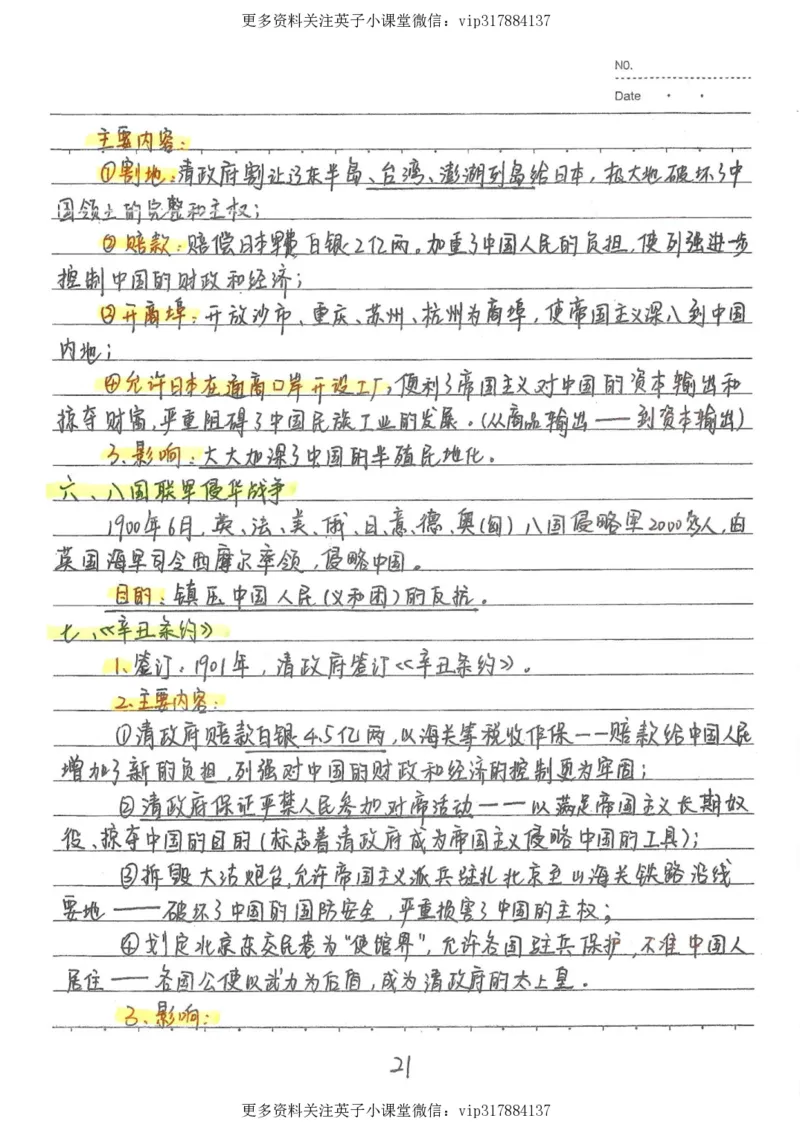 更多资料关注英子小课堂微信：vip317884137
NO.
Date
主要内容：
①割地：清政府割让辽东半岛、台湾、澎湖列岛给日本，极大地破坏了中
国领土的完整和主权；
②赔款：赔偿日本军费白银2亿两。加重了中国人民的负担，使列强进一步
控制中国的财政和经济；
③开商埠：开放沙市、重庆、苏州、杭州为商埠，使帝国主义深入到中国
内地；
④允许日本在通商口岸开设工厂；便利了帝国主义对中国的资本输出和
掠夺财富，严重阻碍了中国民族工业的发展。（从商品输出——到资本输出）
3、影响：大大加深了中国的半殖民地化。
六、八国联军侵华战争
1900年6月，英、法、美、俄、日、意、德、奥（匈）八国侵略军2000多人，由
英国海军司令西摩尔率领，侵略中国。
目的：镇压中国人民（义和团）的反抗。
七、《辛丑条约》
1、签订：1901年，清政府签订《辛丑条约》。
2、主要内容：
①清政府赔款白银4.5亿两，以海关等税收作保——赔款给中国人民
增加了新的负担，列强对中国的财政和经济的控制更为牢固；
②清政府保证严禁人民参加对帝活动——以满足帝国主义长期奴
役、掠夺中国的目的（标志着清政府成为帝国主义侵略中国的工具）；
③拆毁大沽炮台，允许帝国主义派兵驻扎北京至山海关铁路沿线
要地——破坏了中国的国防安全，严重损害了中国的主权；
④划定北京东交民巷为“使馆界”，允许各国驻兵保护，不准中国人
居住——各国公使以武力为后盾，成为清政府的太上皇。
3、影响：
21
更多资料关注英子小课堂微信：vip317884137